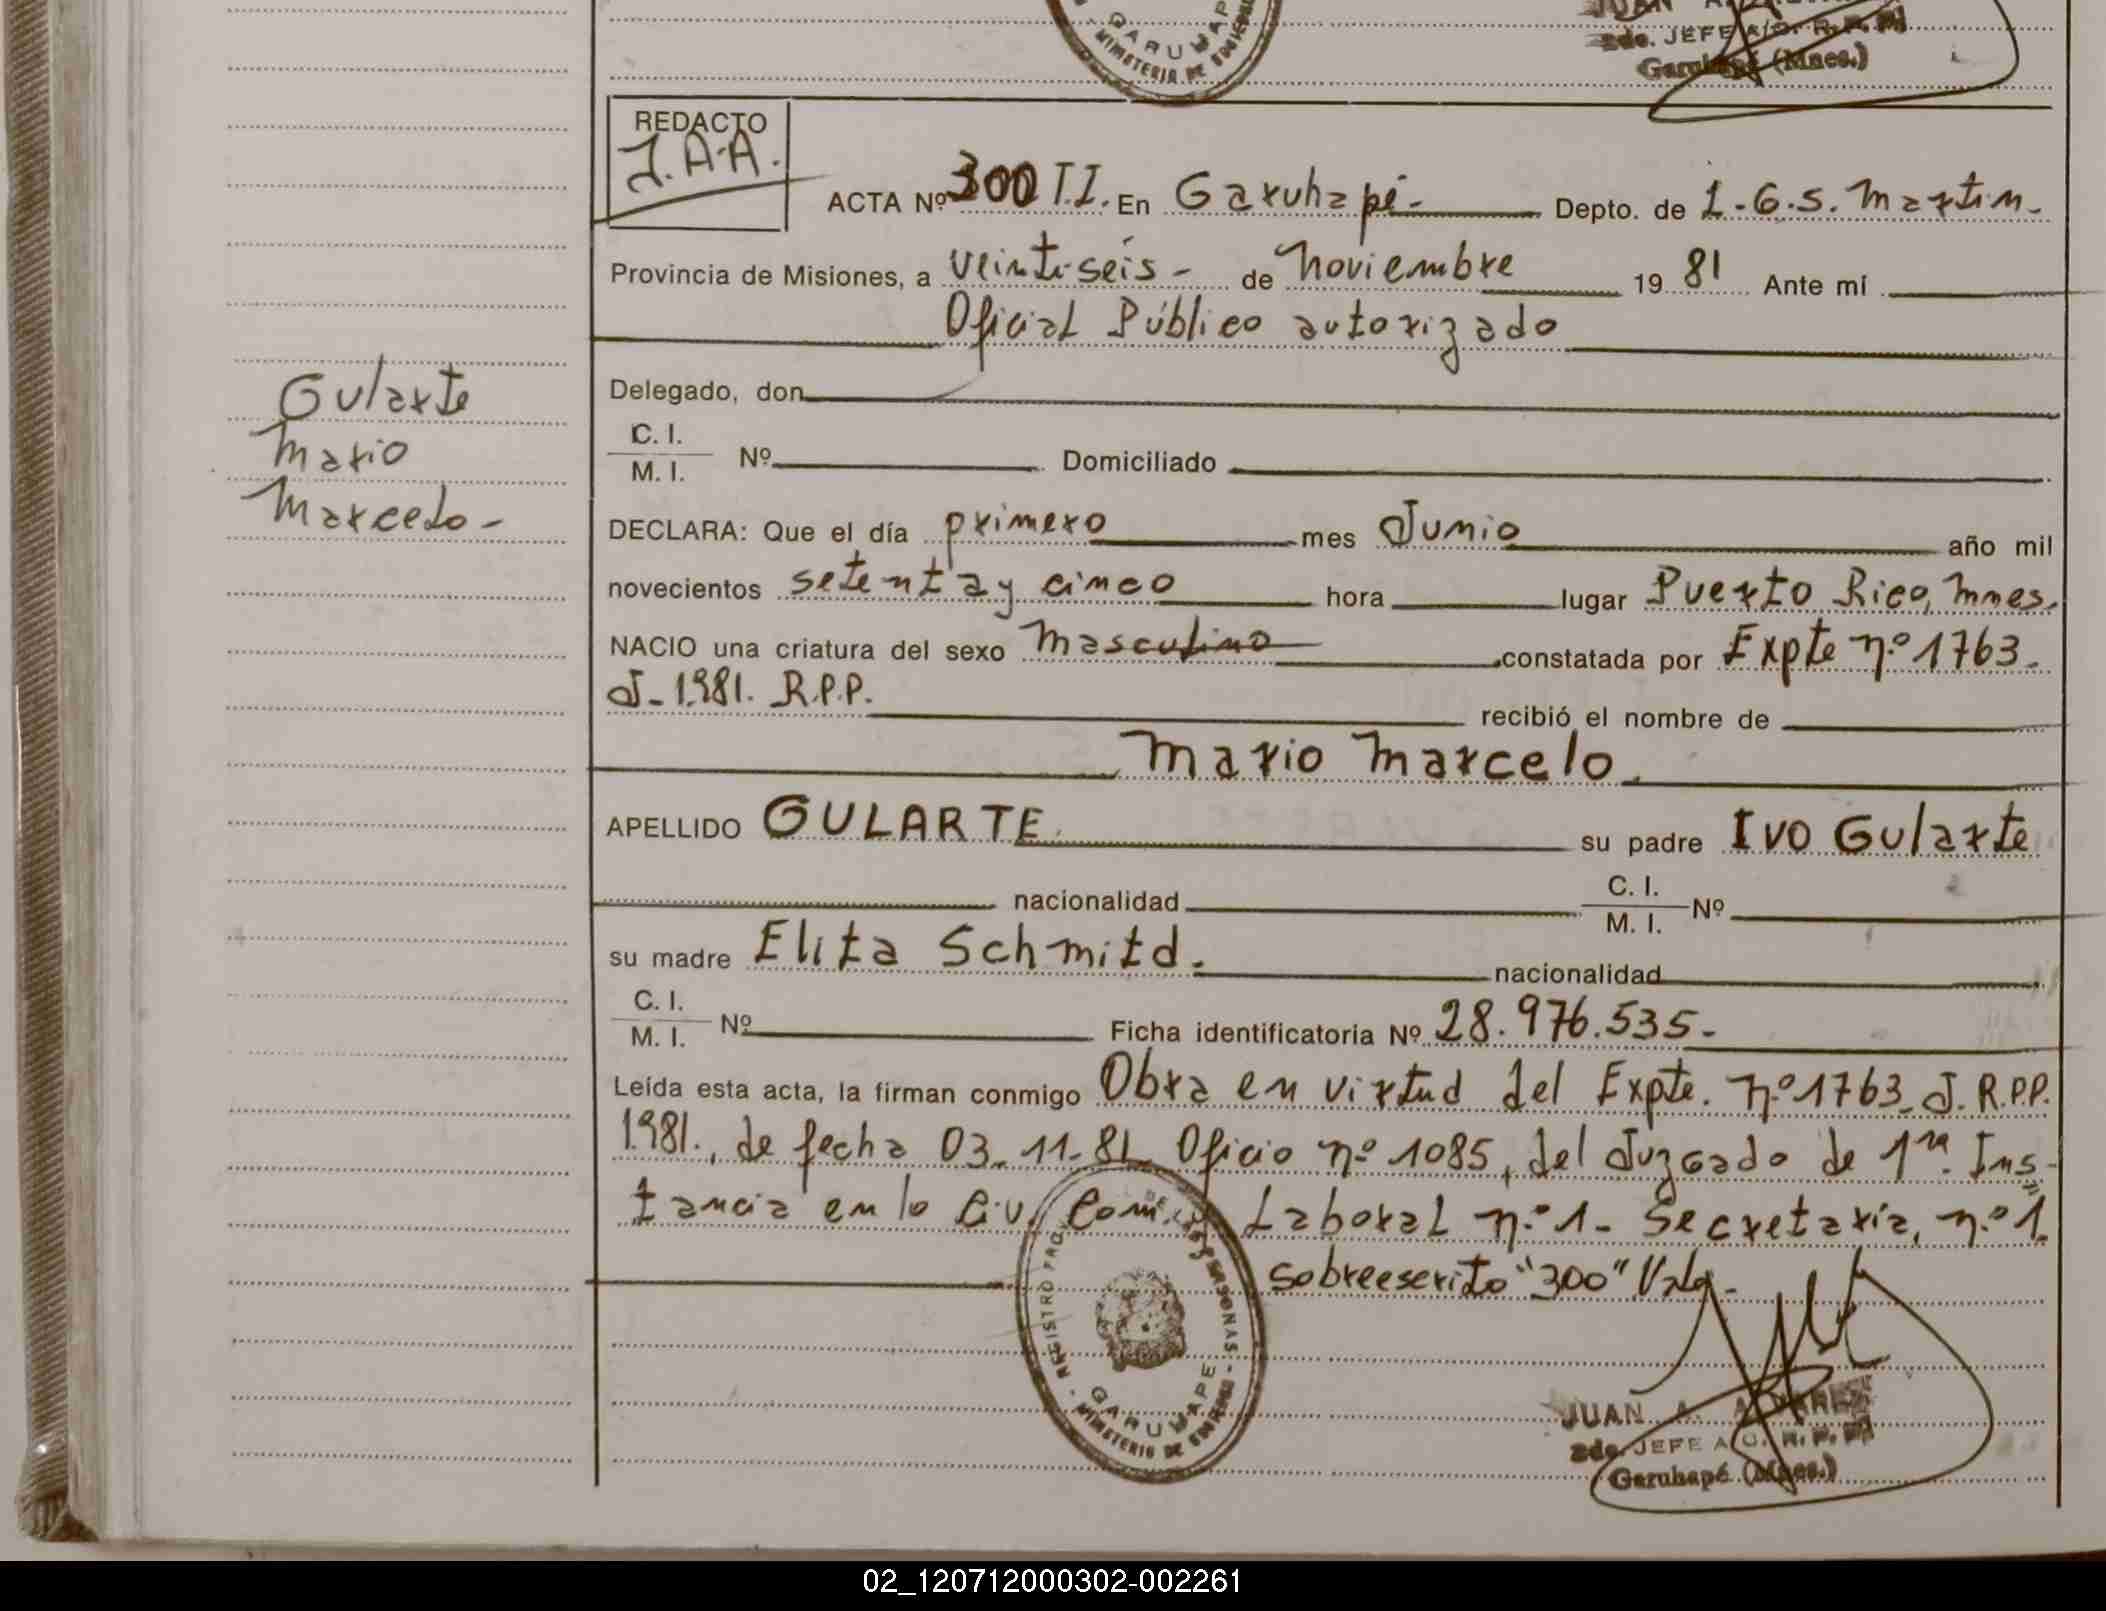 GARUHAPE
MINISTERIO DE GOBIERNO
JUAN A.
2do. JEFE A/O. R.P.P.
Garuhapé (Mnes.)
REDACTO
J.A.A.
ACTA Nº 300 T.I. En Garuhapé.- Depto. de L.G.S. Martin.
Provincia de Misiones, a veintiséis - de Noviembre 19 81 Ante mí
Oficial Público autorizado
Delegado, don
C. I.
M. I. Nº Domiciliado
Gularte
Mario
Marcelo-
DECLARA: Que el día primero mes Junio año mil
novecientos setenta y cinco hora lugar Puerto Rico, Mnes.
NACIO una criatura del sexo Masculino constatada por Expte n.º 1763.
J-1.981. R.P.P. recibió el nombre de
Mario Marcelo.
APELLIDO GULARTE. su padre Ivo Gularte
nacionalidad C. I.
M. I. Nº
su madre Elita Schmitd. nacionalidad
C. I.
M. I. Nº Ficha identificatoria Nº 28.976.535-
Leída esta acta, la firman conmigo Obra en virtud del Expte. n.º 1763. J. R.P.P.
1.981., de fecha 03-11-81. Oficio n.º 1085, del Juzgado de 1ra. Ins-
tancia en lo Civ. Com. Laboral n.º 1- Secretaría, n.º 1.
sobreescrito "300" Vale.-
REGISTRO PROV. DE LAS PERSONAS - GARUHAPE - MINISTERIO DE GOBIERNO
JUAN A. ALVAREZ
2do. JEFE A/O. R.P.P.
Garuhapé (Mnes.)
02_120712000302-002261